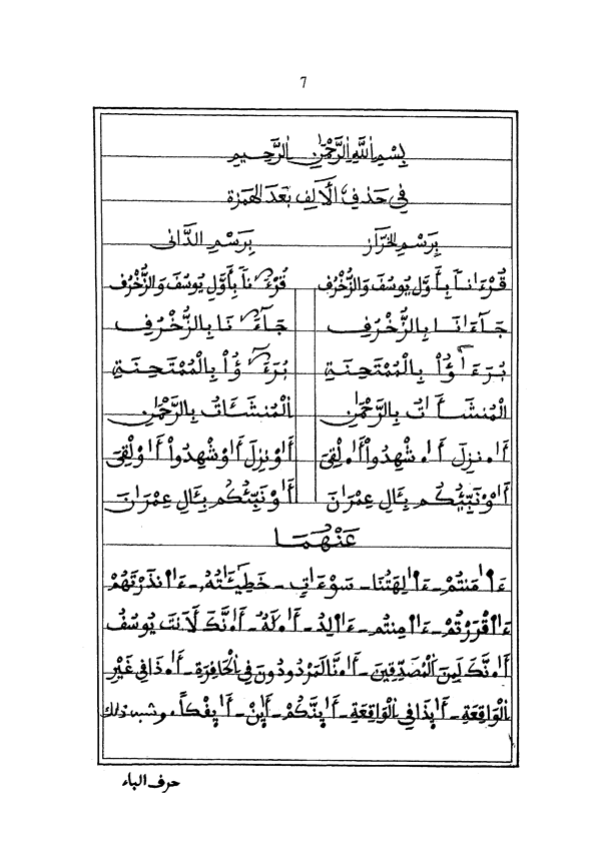 7
بِسْمِ اللَّهِ الرَّحْمَٰنِ الرَّحِيمِ
فِي حَذْفِ الْأَلِفِ بَعْدَ الْهَمْزَةِ
بِرَسْمِ الْخَرَّازِ بِرَسْمِ الدَّانِي
قُرْءَٰناً بِأَوَّلِ يُوسُفَ وَالزُّخْرُفِ قُرْءَٰناً بِأَوَّلِ يُوسُفَ وَالزُّخْرُفِ
جَآءَٰنَا بِالزُّخْرُفِ جَآءَٰنَا بِالزُّخْرُفِ
بُرَءَٰٓؤُاْ بِالْمُمْتَحِنَةِ بُرَءَٰٓؤُاْ بِالْمُمْتَحِنَةِ
الْمُنشَـَٰٔاتُ بِالرَّحْمَٰنِ الْمُنشَـَٔاتُ بِالرَّحْمَٰنِ
أَا۟نزِلَ أَا۟شْهِدُواْ أَا۟لْقِيَ أَا۟ونزِلَ أَا۟وشْهِدُواْ أَا۟ولْقِيَ
أَا۟وْنَبِّئُكُم بِـَٔالِ عِمْرَانَ أَا۟وْنَبِّئُكُم بِـَٔالِ عِمْرَانَ
عَنْهُمَا
ءَا۬مَنتُمْ - ءَا۬لِهَتُنَا - سَوْءَٰتِ - خَطِيـَٰٔتُهُ - ءَآنذَرْتَهُمْ
ءَآقْرَرْتُمْ - ءَآمِنتُم - ءَآلِدُ - أَا۟لَهٌ - أَا۟نَّكَ لَأَنتَ يُوسُفُ
أَا۟نَّكَ لَمِنَ الْمُصَدِّقِينَ - أَا۟نَّا لَمَرْدُودُونَ فِي الْحَافِرَةِ - أَا۟ذَا فِي غَيْرِ
الْوَاقِعَةِ - أَيِذَا فِي الْوَاقِعَةِ - أَيِنَّكُمْ - أَيِنْ - أَيِفْكاً. وشبه ذلك
حرف الباء